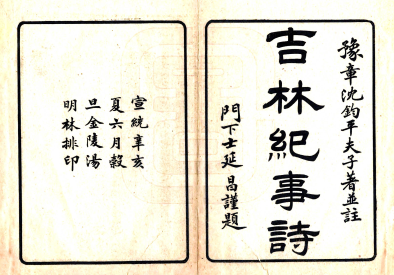 豫章沈鈞平夫子著並註
吉林紀事詩
門下士延昌謹題
宣統辛亥
夏六月穀
旦金陵湯
明林排印